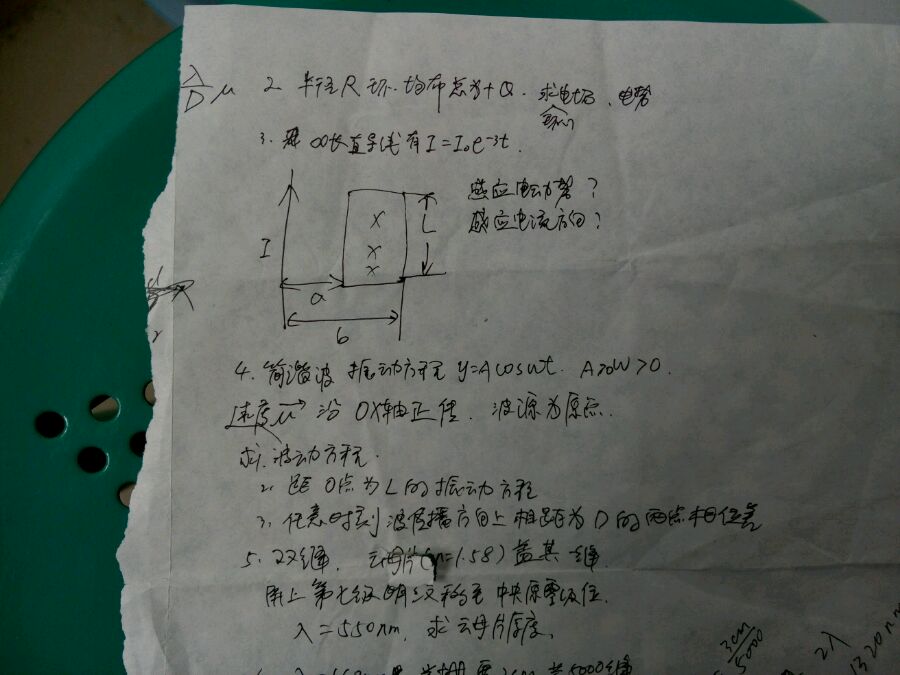 λ/D μ 2. 半径R环.均布总为+Q. 求电场、电势
环心
3. ∞长直导线有I=I₀e⁻³ᵗ.
感应电动势?
感应电流方向?
I
L
a
b
4. 简谐波 振动方程 y=Acosωt. A>0 W>0.
速度μ 沿OX轴正传. 波源为原点.
求1. 波动方程.
2. 距O点为L的振动方程
3. 任意时刻波传播方向上相距为D的两点相位差
5. 双缝. 云母片(n=1.58)盖其一缝.
屏上第七级明纹移至中央原零级位.
λ=550nm. 求云母片厚度.
3cm/5000
2λ
1320nm
5000缝